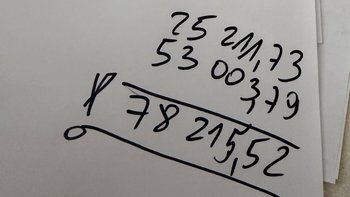 25 211,73
53 003,79
78 215,52